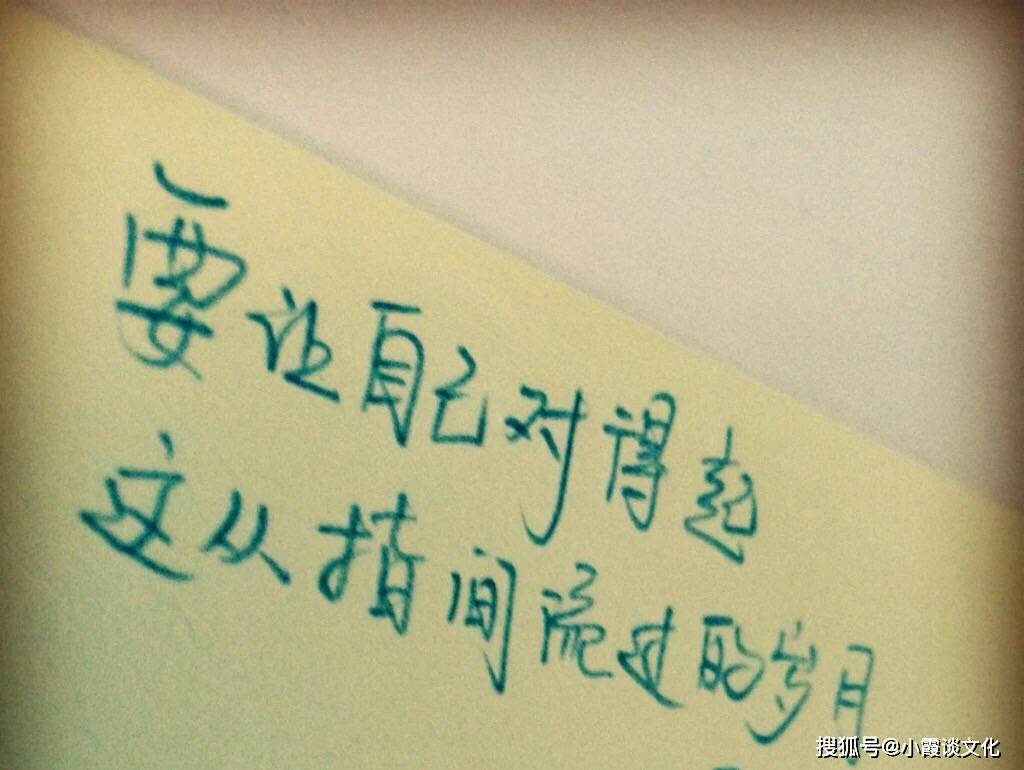 要让自己对得起
这从指间流过的岁月
搜狐号@小霞谈文化